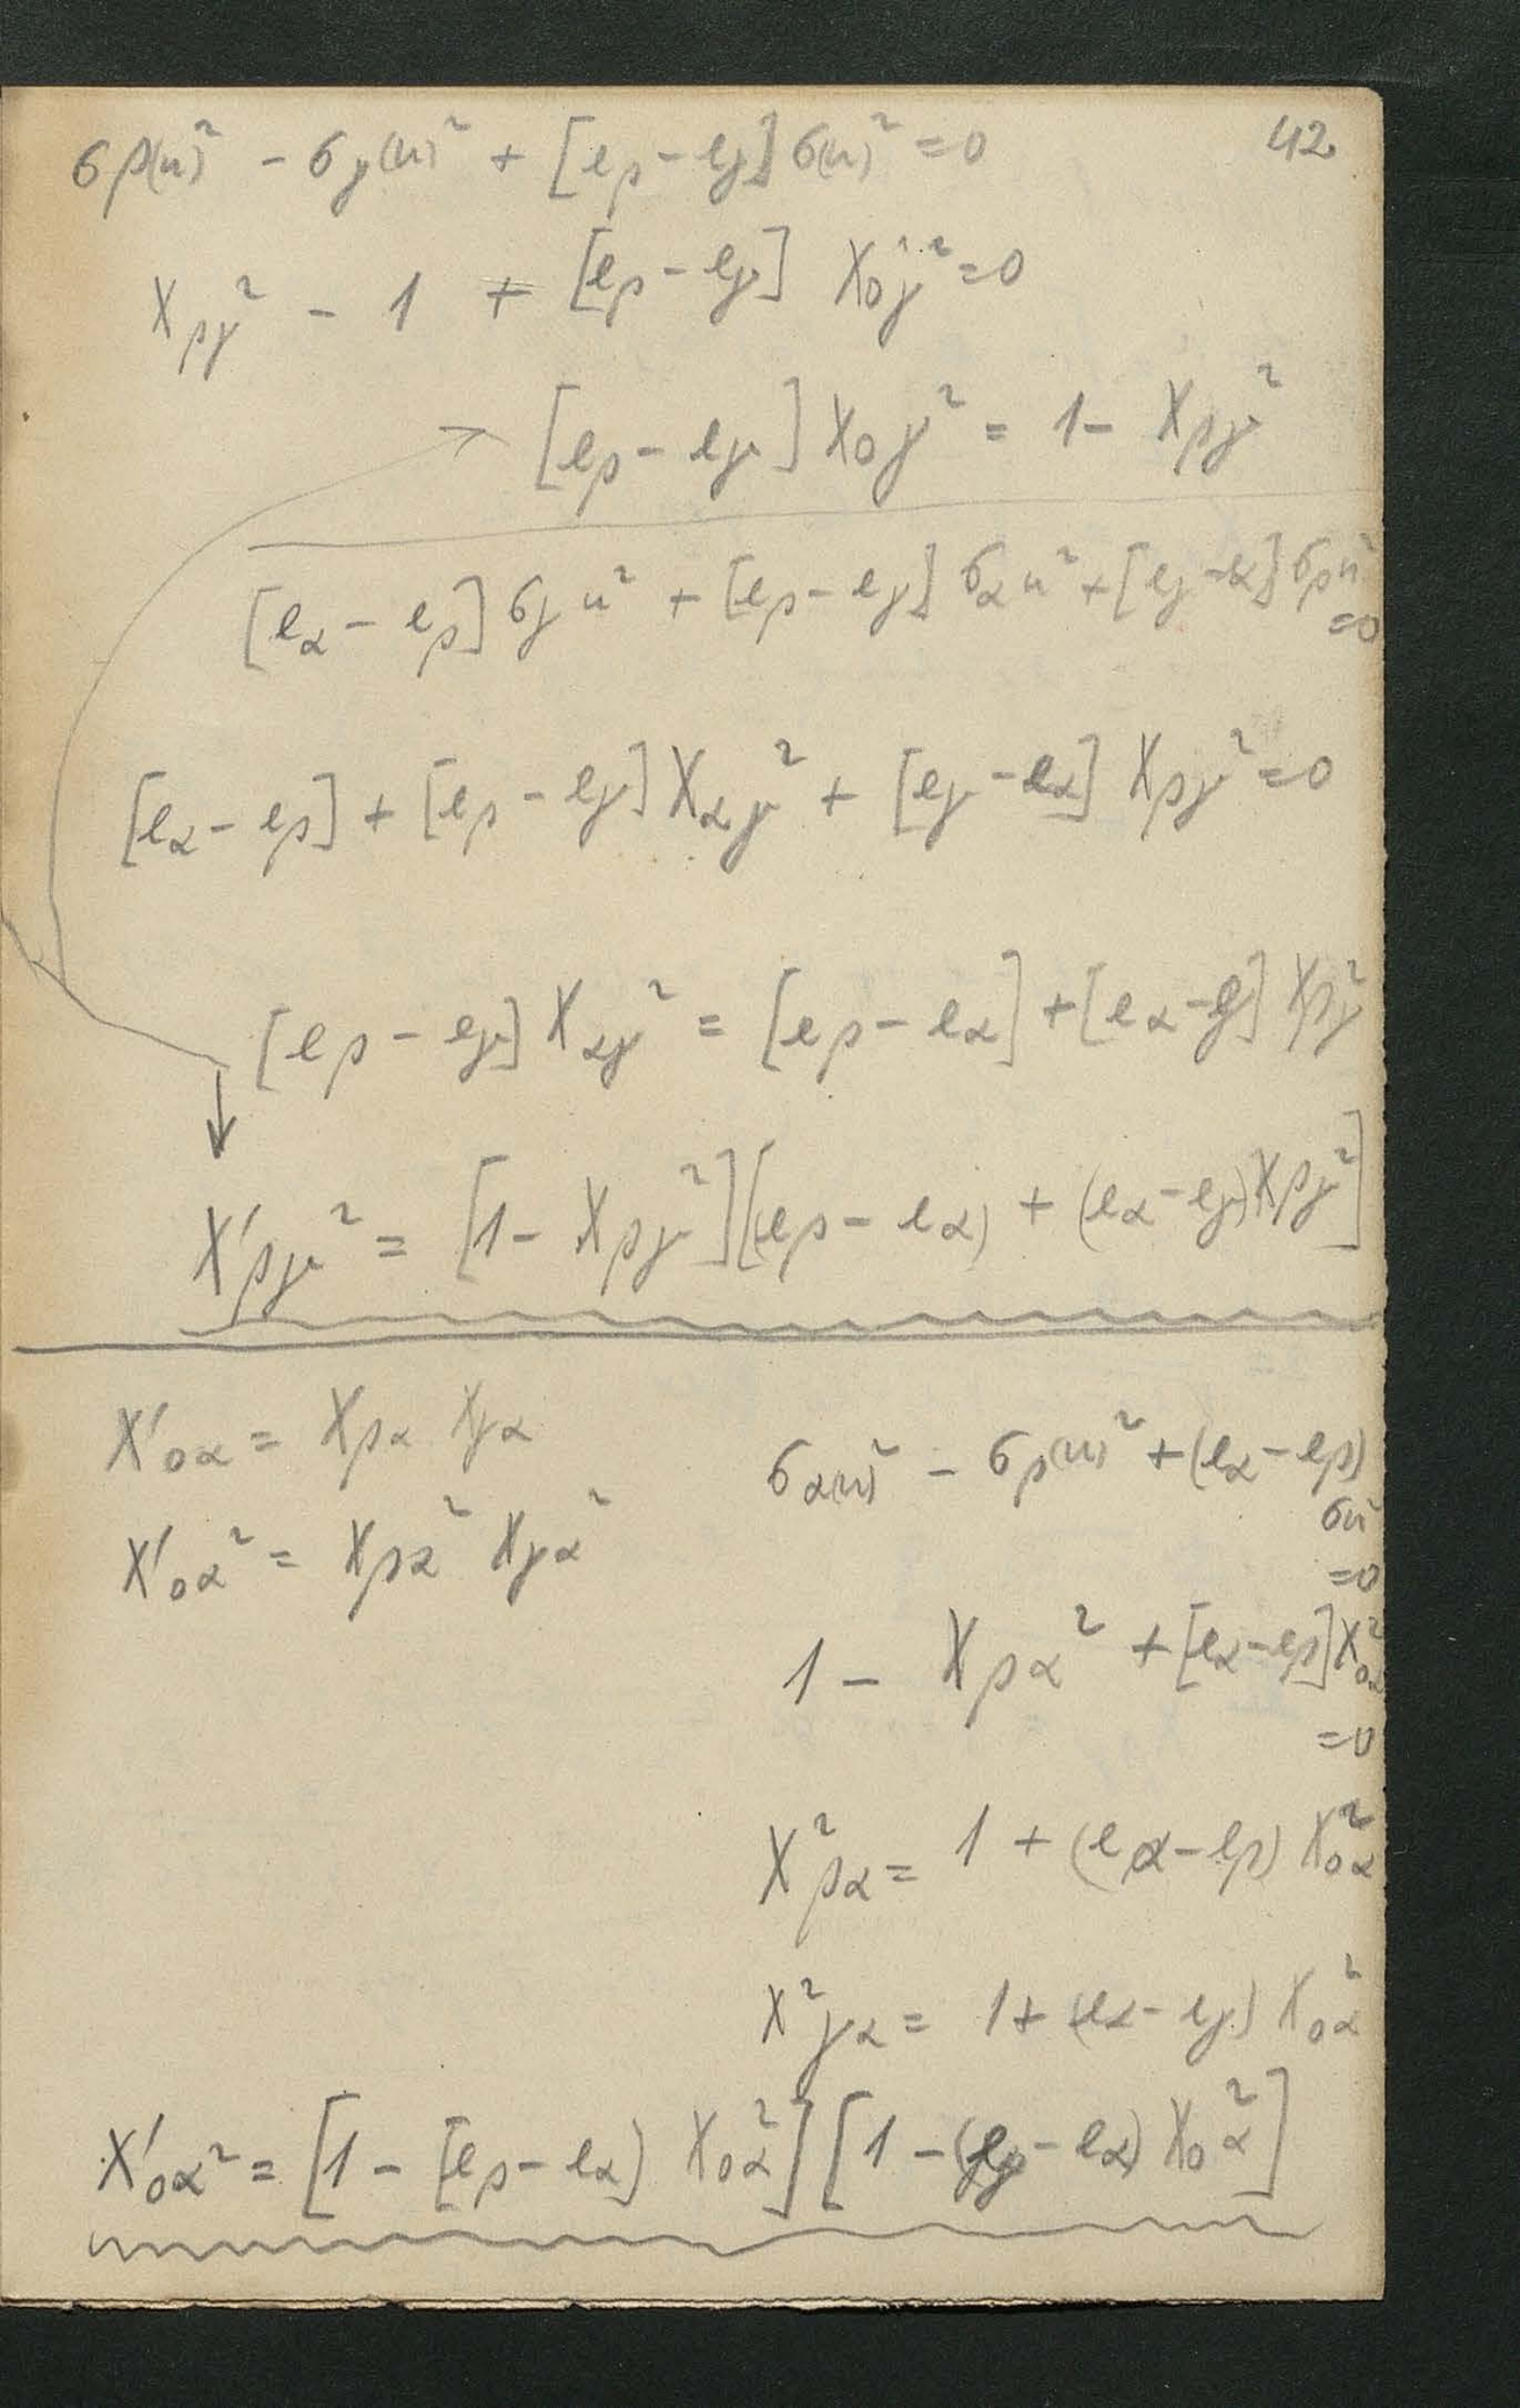 42
σβ(u)² - σγ(u)² + [eβ - eγ] σ(u)² = 0
Xβγ² - 1 + [eβ - eγ] X0γ² = 0
→ [eβ - eγ] X0γ² = 1 - Xβγ²
[eα - eβ] σγ u² + [eβ - eγ] σα u² + [eγ - eα] σβ u²
= 0
[eα - eβ] + [eβ - eγ] Xαγ² + [eγ - eα] Xβγ² = 0
[eβ - eγ] Xαγ² = [eβ - eα] + [eα - eγ] Xβγ²
↓
X′βγ² = [1 - Xβγ²][(eβ - eα) + (eα - eγ) Xβγ²]
X′0α = Xβα Xγα
X′0α² = Xβα² Xγα²
σα(u)² - σβ(u)² + (eα - eβ)
σu²
= 0
1 - Xβα² + [eα - eβ] X0α²
= 0
X²βα = 1 + (eα - eβ) X0α²
X²γα = 1 + (eα - eγ) X0α²
X′0α² = [1 - (eβ - eα) X0α²] [1 - (eγ - eα) X0α²]